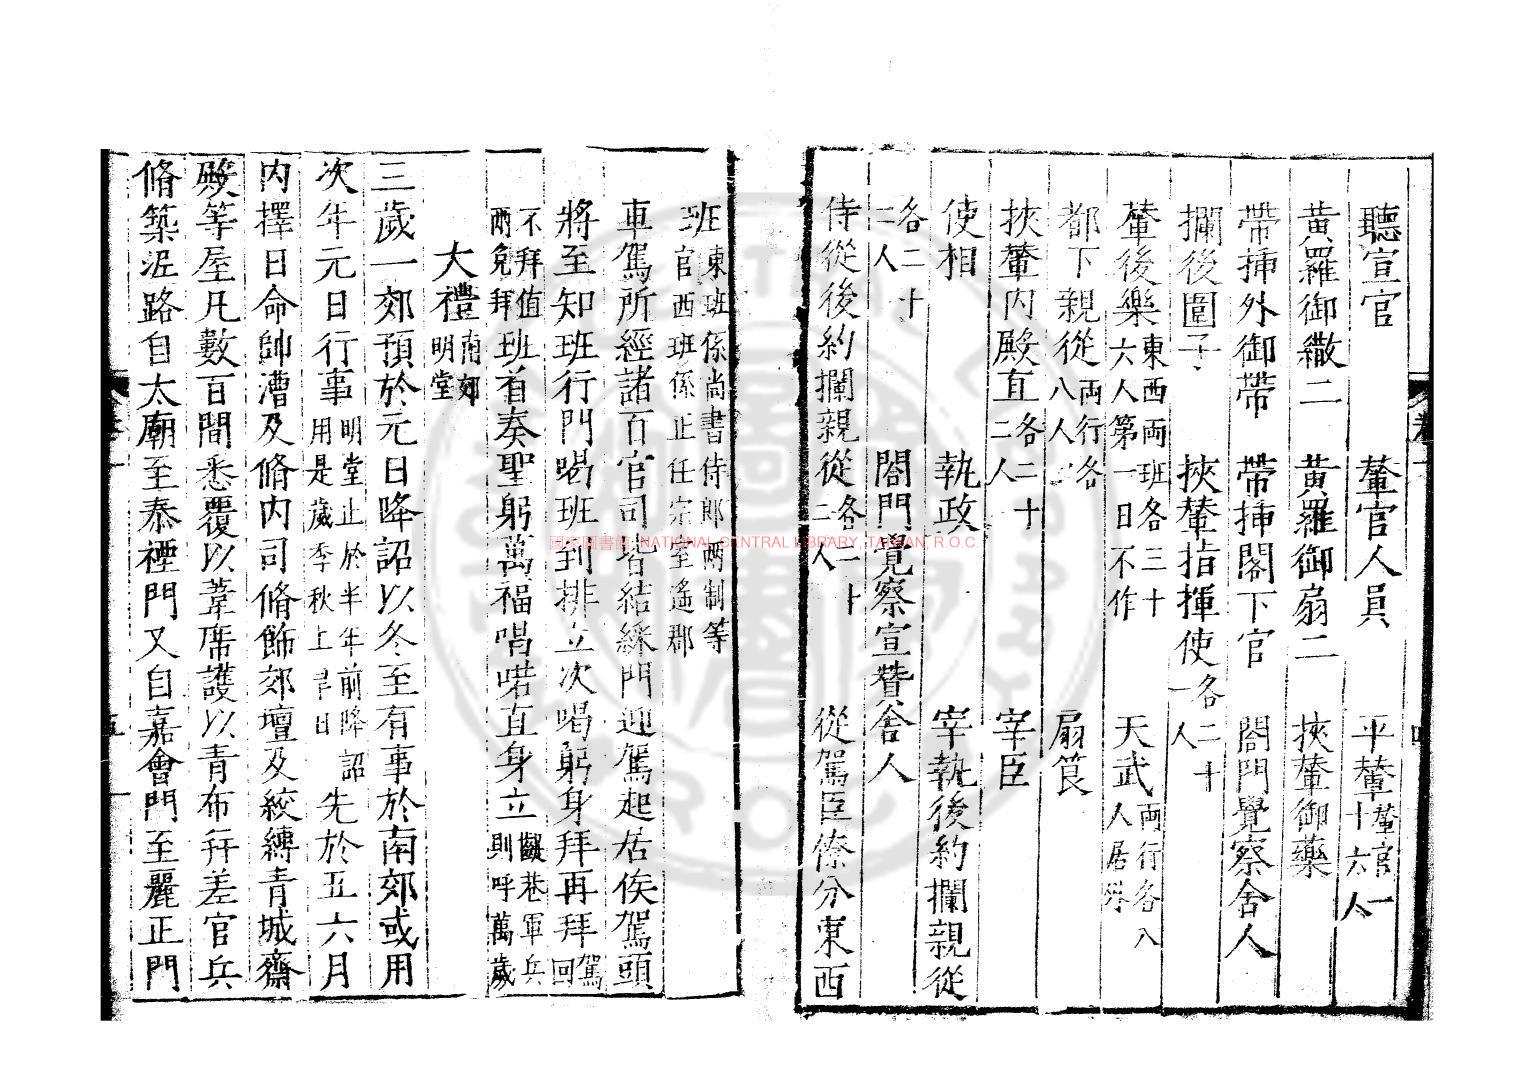 聽宣官 輦官人員 平輦輦官一十六人
黃羅御繖二 黃羅御扇二 挾輦御藥
帶插外御帶 帶插閣下官 閤門覺察舍人
攔後圍子 挾輦指揮使各二十一人
輦後樂東西兩班各三十六人第一日不作 天武兩行各八人居外
都下親從兩行各八人 扇筤
挾輦內殿直各二十二人 宰臣
使相 執政 宰執後約攔親從
各二十二人 閤門覺察宣贊舍人
侍從後約攔親從各二十二人 從駕臣僚分東西
班東班係尚書侍郎兩制等
官西班係正任宗室遙郡
車駕所經諸百官司皆結綵門迎駕起居俟駕頭
將至知班行門喝班到排立次喝躬身拜再拜駕回
不拜值班兩免拜班首奏聖躬萬福唱喏直身立巷軍兵則呼萬歲
大禮南郊明堂
三歲一郊預於元日降詔以冬至有事於南郊或用
次年元日行事明堂止於半年前降詔用是歲季秋上辛日先於五六月
內擇日命帥漕及脩內司脩飾郊壇及絞縛青城齋
殿等屋凡數百間悉覆以葦席護以青布并差官兵
脩築泥路自太廟至泰禋門又自嘉會門至麗正門
國家圖書館 NATIONAL CENTRAL LIBRARY, TAIWAN, R.O.C.